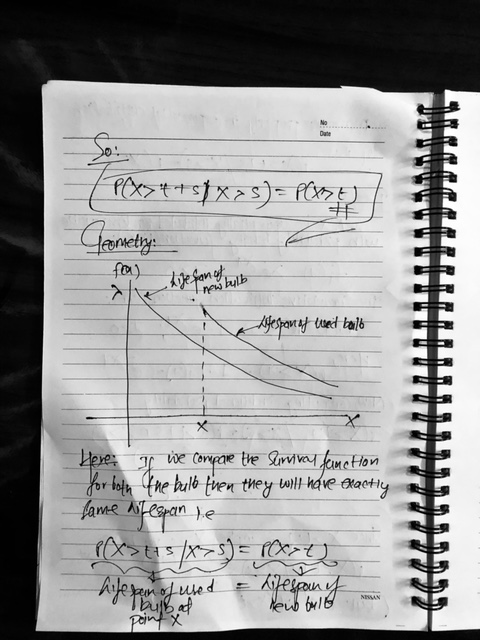 No
Date
So:
P(X>t+s/X>s) = P(X>t)
Geometry:
f(x)
λ
Lifespan of
new bulb
Lifespan of used bulb
X
X
Here: If we compare the survival function
for both the bulb then they will have exactly
same lifespan i.e
P(X>t+s/X>s) = P(X>t)
Lifespan of used = Lifespan of
bulb at new bulb
point X
NISSAN